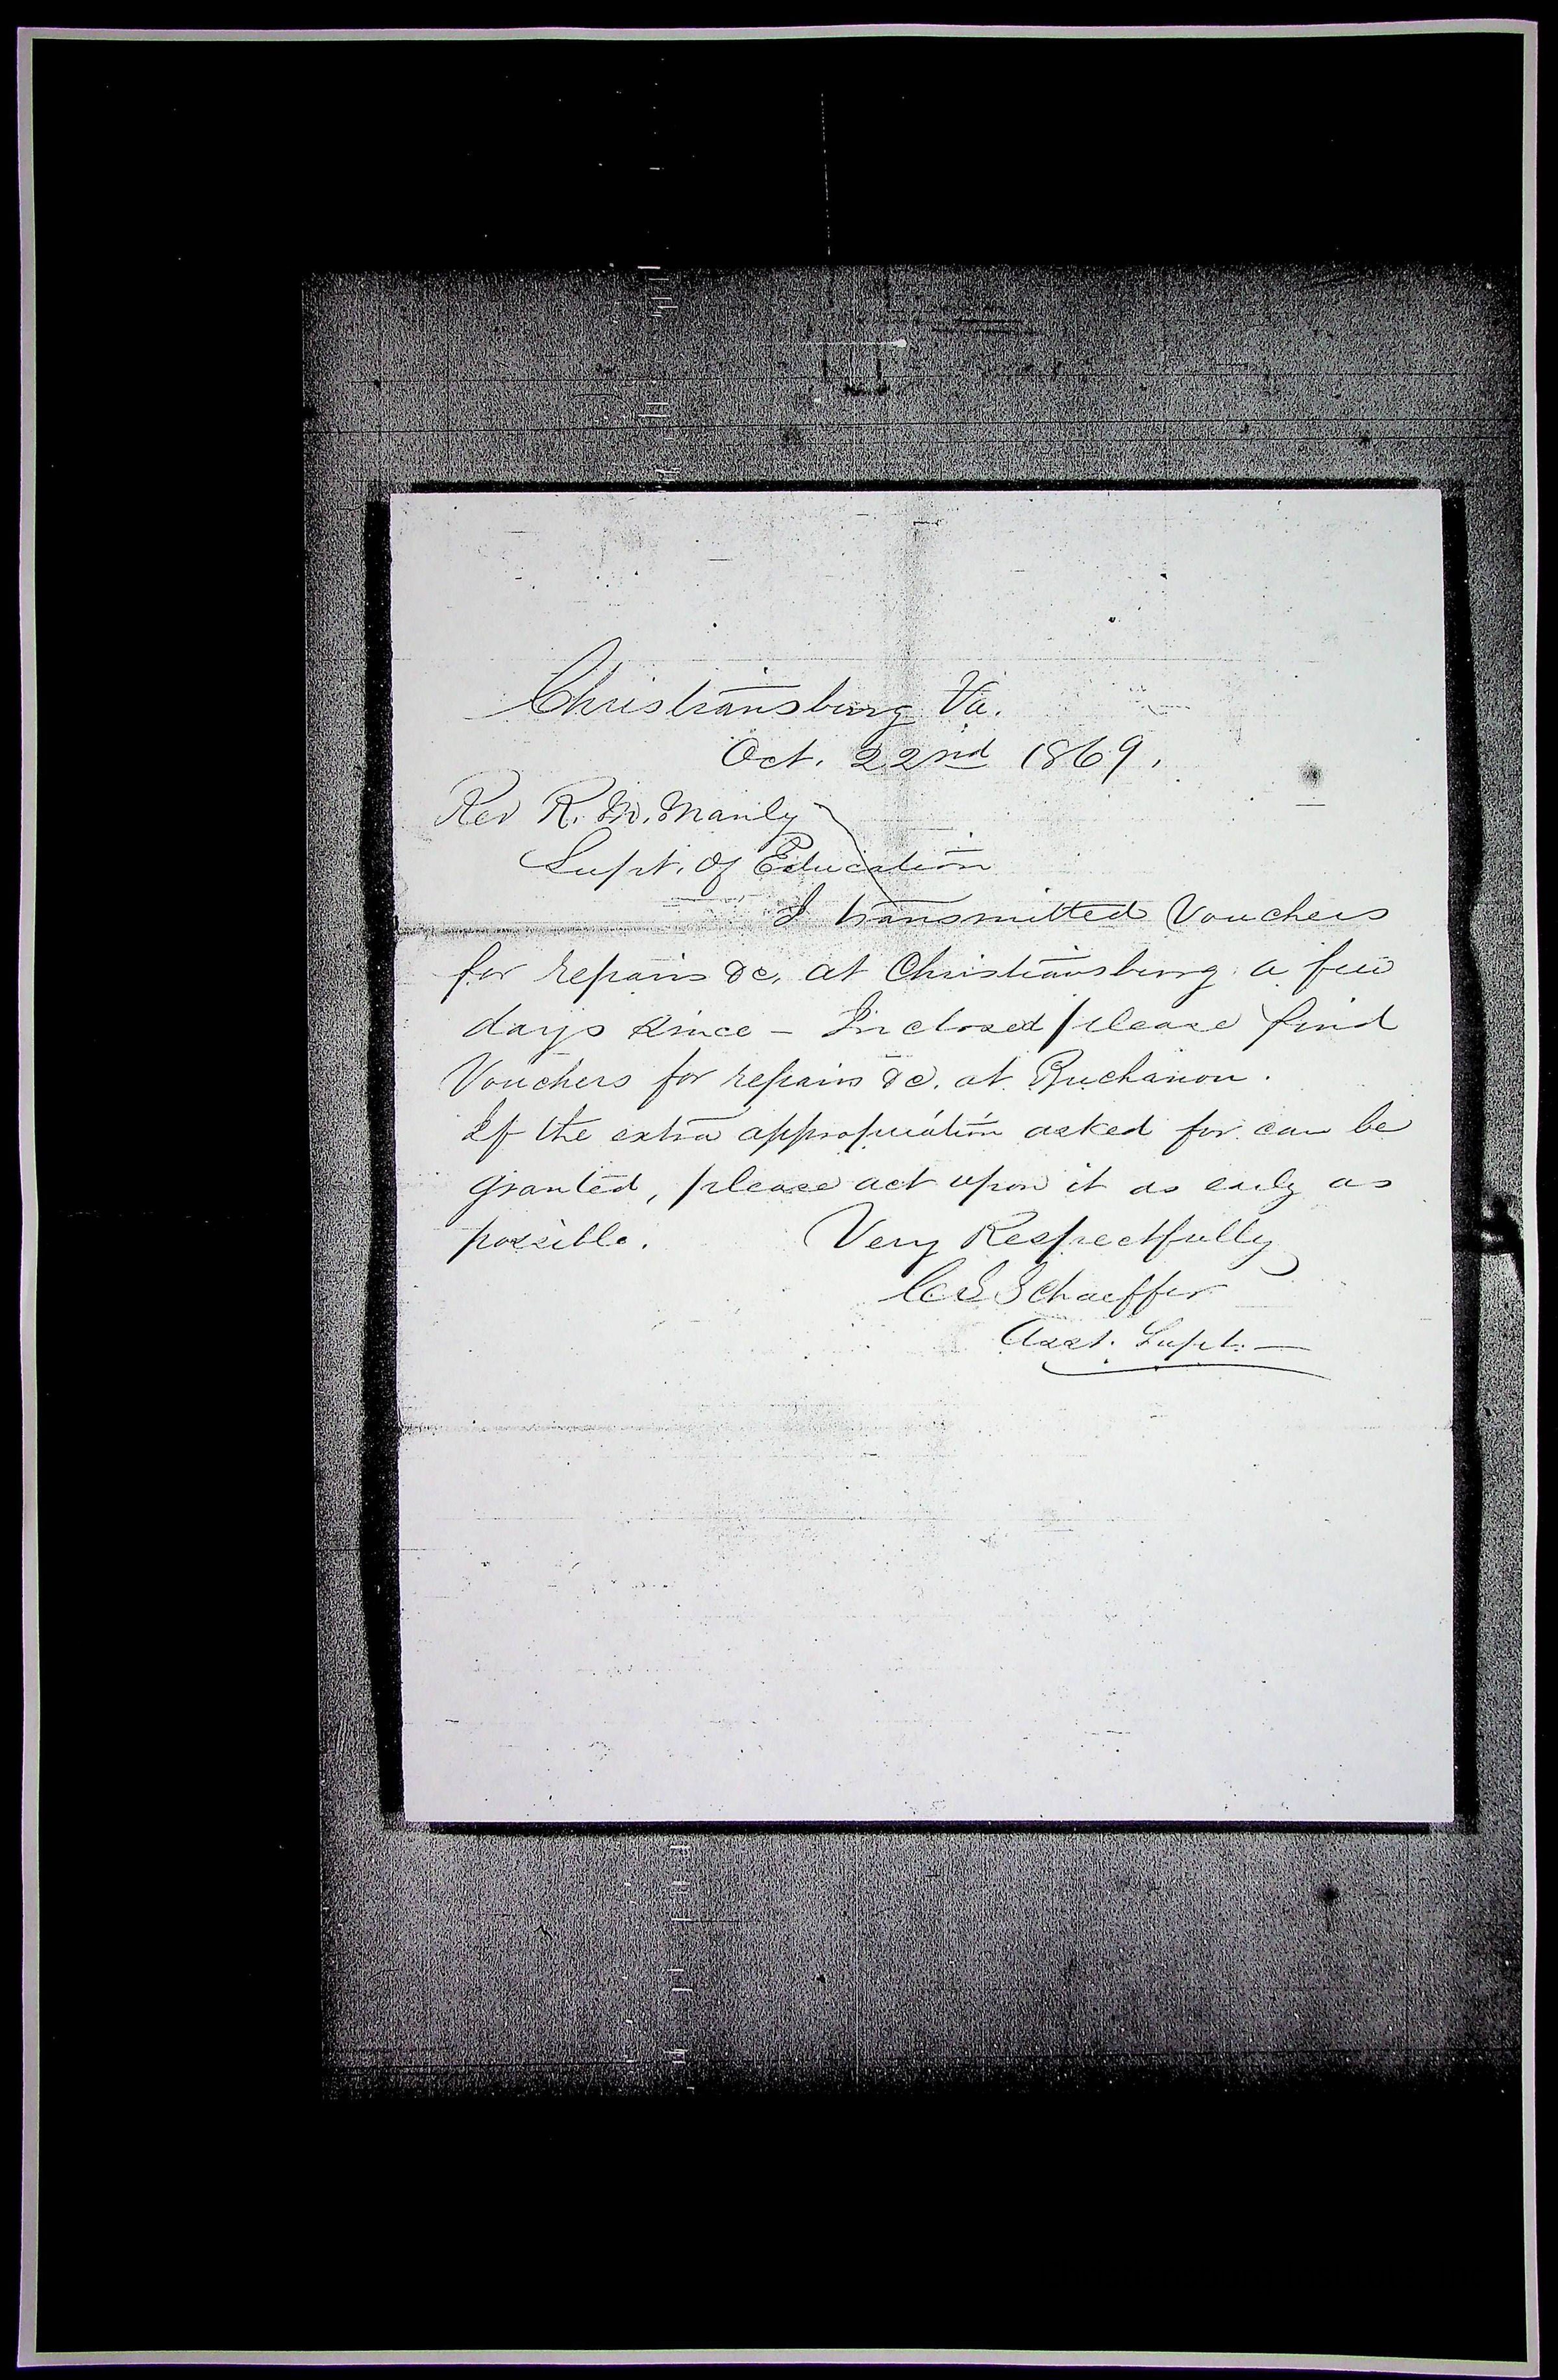 Christiansburg Va.
Oct. 22nd 1869.
Rev R. M. Manly
Supt. of Education
I transmitted Vouchers
for repairs &c. at Christiansburg a few
days since – Inclosed please find
Vouchers for repairs &c. at Buchanon.
If the extra appropriation asked for can be
granted, please act upon it as early as
possible. Very Respectfully
C S Schaeffer
Asst. Supt. —